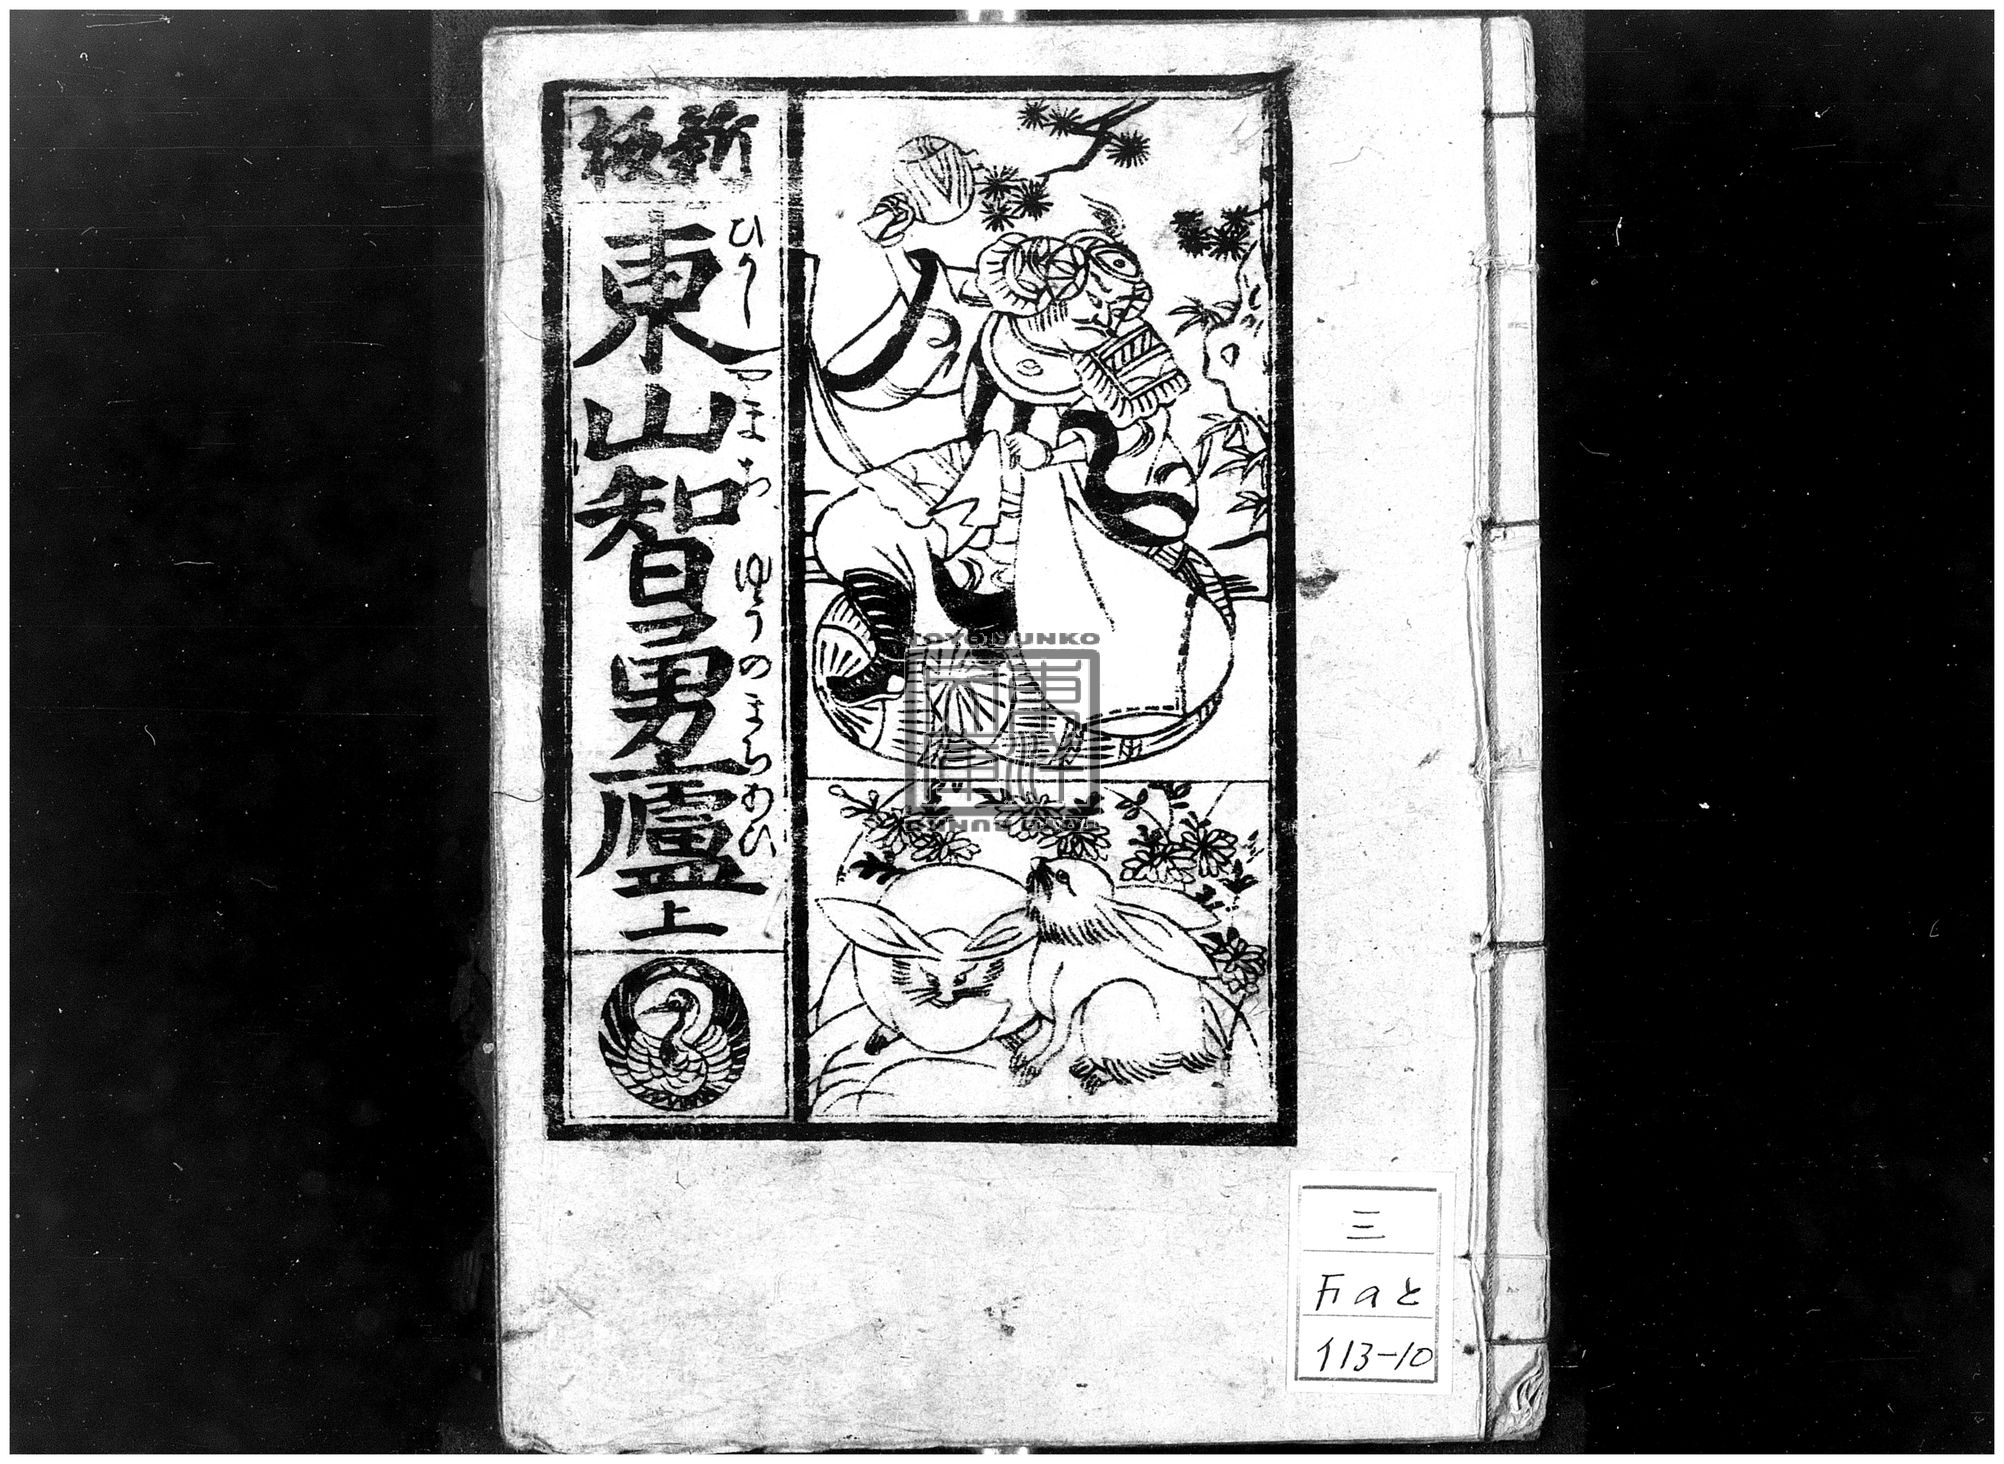 新板
東山智勇廬上
ひがしやまちゆうのまちあひ
TOYO BUNKO
東洋文庫
三
Faと
113-10